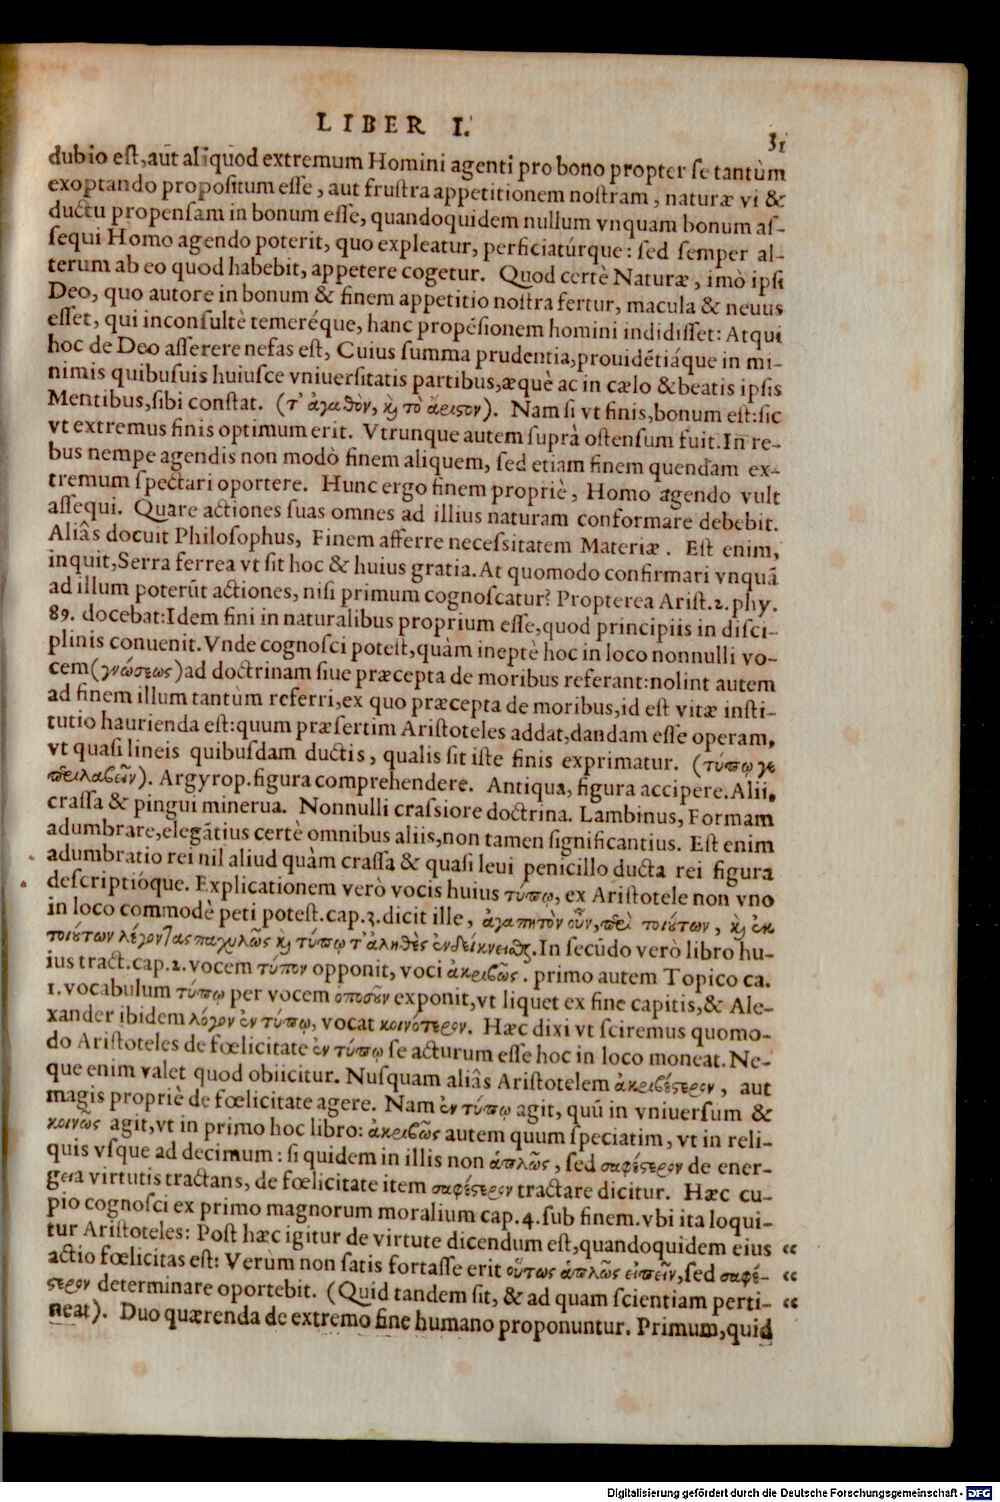 LIBER I.
31
dubio est,aut aliquod extremum Homini agenti pro bono propter se tantùm
exoptando propositum esse, aut frustra appetitionem nostram, naturæ vi &
ductu propensam in bonum esse, quandoquidem nullum vnquam bonum as-
sequi Homo agendo poterit, quo expleatur, perficiatúrque: sed semper al-
terum ab eo quod habebit, appetere cogetur. Quod certè Naturæ, imò ipsi
Deo, quo autore in bonum & finem appetitio nostra fertur, macula & neuus
esset, qui inconsultè temeréque, hanc propẽsionem homini indidisset: Atqui
hoc de Deo asserere nefas est, Cuius summa prudentia,prouidẽtiáque in mi-
nimis quibusuis huiusce vniuersitatis partibus,æquè ac in cælo & beatis ipsis
Mentibus,sibi constat. (τ' ἀγαθὸν, ϗ τὸ ἄριστον). Nam si vt finis,bonum est:sic
vt extremus finis optimum erit. Vtrunque autem suprà ostensum fuit. In re-
bus nempe agendis non modò finem aliquem, sed etiam finem quendam ex-
tremum spectari oportere. Hunc ergo finem propriè, Homo agendo vult
assequi. Quare actiones suas omnes ad illius naturam conformare debebit.
Aliâs docuit Philosophus, Finem afferre necessitatem Materiæ. Est enim,
inquit,Serra ferrea vt sit hoc & huius gratia. At quomodo confirmari vnquã
ad illum poterũt actiones, nisi primum cognoscatur? Propterea Arist.2.phy.
89. docebat:Idem fini in naturalibus proprium esse,quod principiis in disci-
plinis conuenit. Vnde cognosci potest,quàm ineptè hoc in loco nonnulli vo-
cem(γνώσεως)ad doctrinam siue præcepta de moribus referant:nolint autem
ad finem illum tantùm referri,ex quo præcepta de moribus,id est vitæ insti-
tutio haurienda est:quum præsertim Aristoteles addat,dandam esse operam,
vt quasi lineis quibusdam ductis, qualis sit iste finis exprimatur. (τύπῳ γε
περιλαβεῖν). Argyrop.figura comprehendere. Antiqua, figura accipere. Alii,
crassa & pingui minerua. Nonnulli crassiore doctrina. Lambinus, Formam
adumbrare,elegãtius certè omnibus aliis,non tamen significantius. Est enim
adumbratio rei nil aliud quàm crassa & quasi leui penicillo ducta rei figura
descriptióque. Explicationem verò vocis huius τύπῳ, ex Aristotele non vno
in loco commodè peti potest.cap.3.dicit ille, ἀγαπητὸν οὖν,περὶ τοιούτων, ϗ ἐκ
τοιούτων λέγοντας παχυλῶς ϗ τύπῳ τ' ἀληθὲς ἐνδείκνυσθαι. In secũdo verò libro hu-
ius tract.cap.2.vocem τύπον opponit, voci ἀκριβῶς. primo autem Topico ca.
1.vocabulum τύπῳ per vocem ὁποσοῦν exponit,vt liquet ex fine capitis,& Ale-
xander ibidem λόγον ἐν τύπῳ, vocat κοινότερον. Hæc dixi vt sciremus quomo-
do Aristoteles de fœlicitate ἐν τύπῳ se acturum esse hoc in loco moneat. Ne-
que enim valet quod obiicitur. Nusquam aliâs Aristotelem ἀκριβέστερον, aut
magis propriè de fœlicitate agere. Nam ἐν τύπῳ agit, quũ in vniuersum &
κοινῶς agit,vt in primo hoc libro: ἀκριβῶς autem quum speciatim, vt in reli-
quis vsque ad decimum: si quidem in illis non ἁπλῶς, sed σαφέστερον de ener-
geia virtutis tractans, de fœlicitate item σαφέστερον tractare dicitur. Hæc cu-
pio cognosci ex primo magnorum moralium cap.4.sub finem.vbi ita loqui-
tur Aristoteles: Post hæc igitur de virtute dicendum est,quandoquidem eius “
actio fœlicitas est: Verùm non satis fortasse erit οὕτως ἁπλῶς εἰπεῖν,sed σαφέ- “
στερον determinare oportebit. (Quid tandem sit, & ad quam scientiam perti- “
neat). Duo quærenda de extremo fine humano proponuntur. Primum,quid
Digitalisierung gefördert durch die Deutsche Forschungsgemeinschaft - DFG